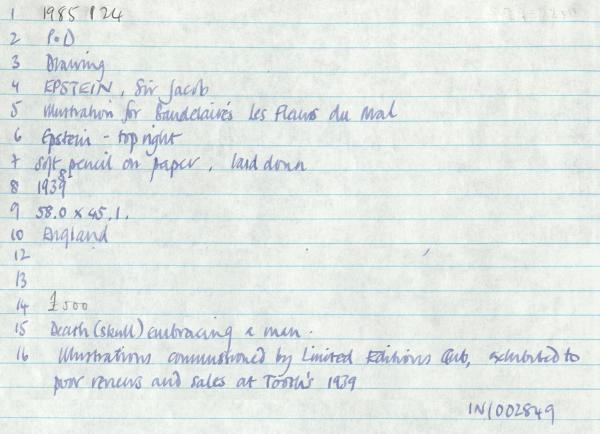 1 1985 / 24
2 P.D
3 Drawing
4 EPSTEIN, Sir Jacob
5 Illustration for Baudelaire's Les Fleurs du Mal
6 Epstein - top right
7 Soft pencil on paper, laid down
8 1939
9 58.0 x 45.1.
10 England
12
13
14 £500
15 Death (skull) embracing a man.
16 Illustrations commissioned by Limited Editions Club, exhibited to
poor reviews and sales at Tooth's 1939
IN/002849